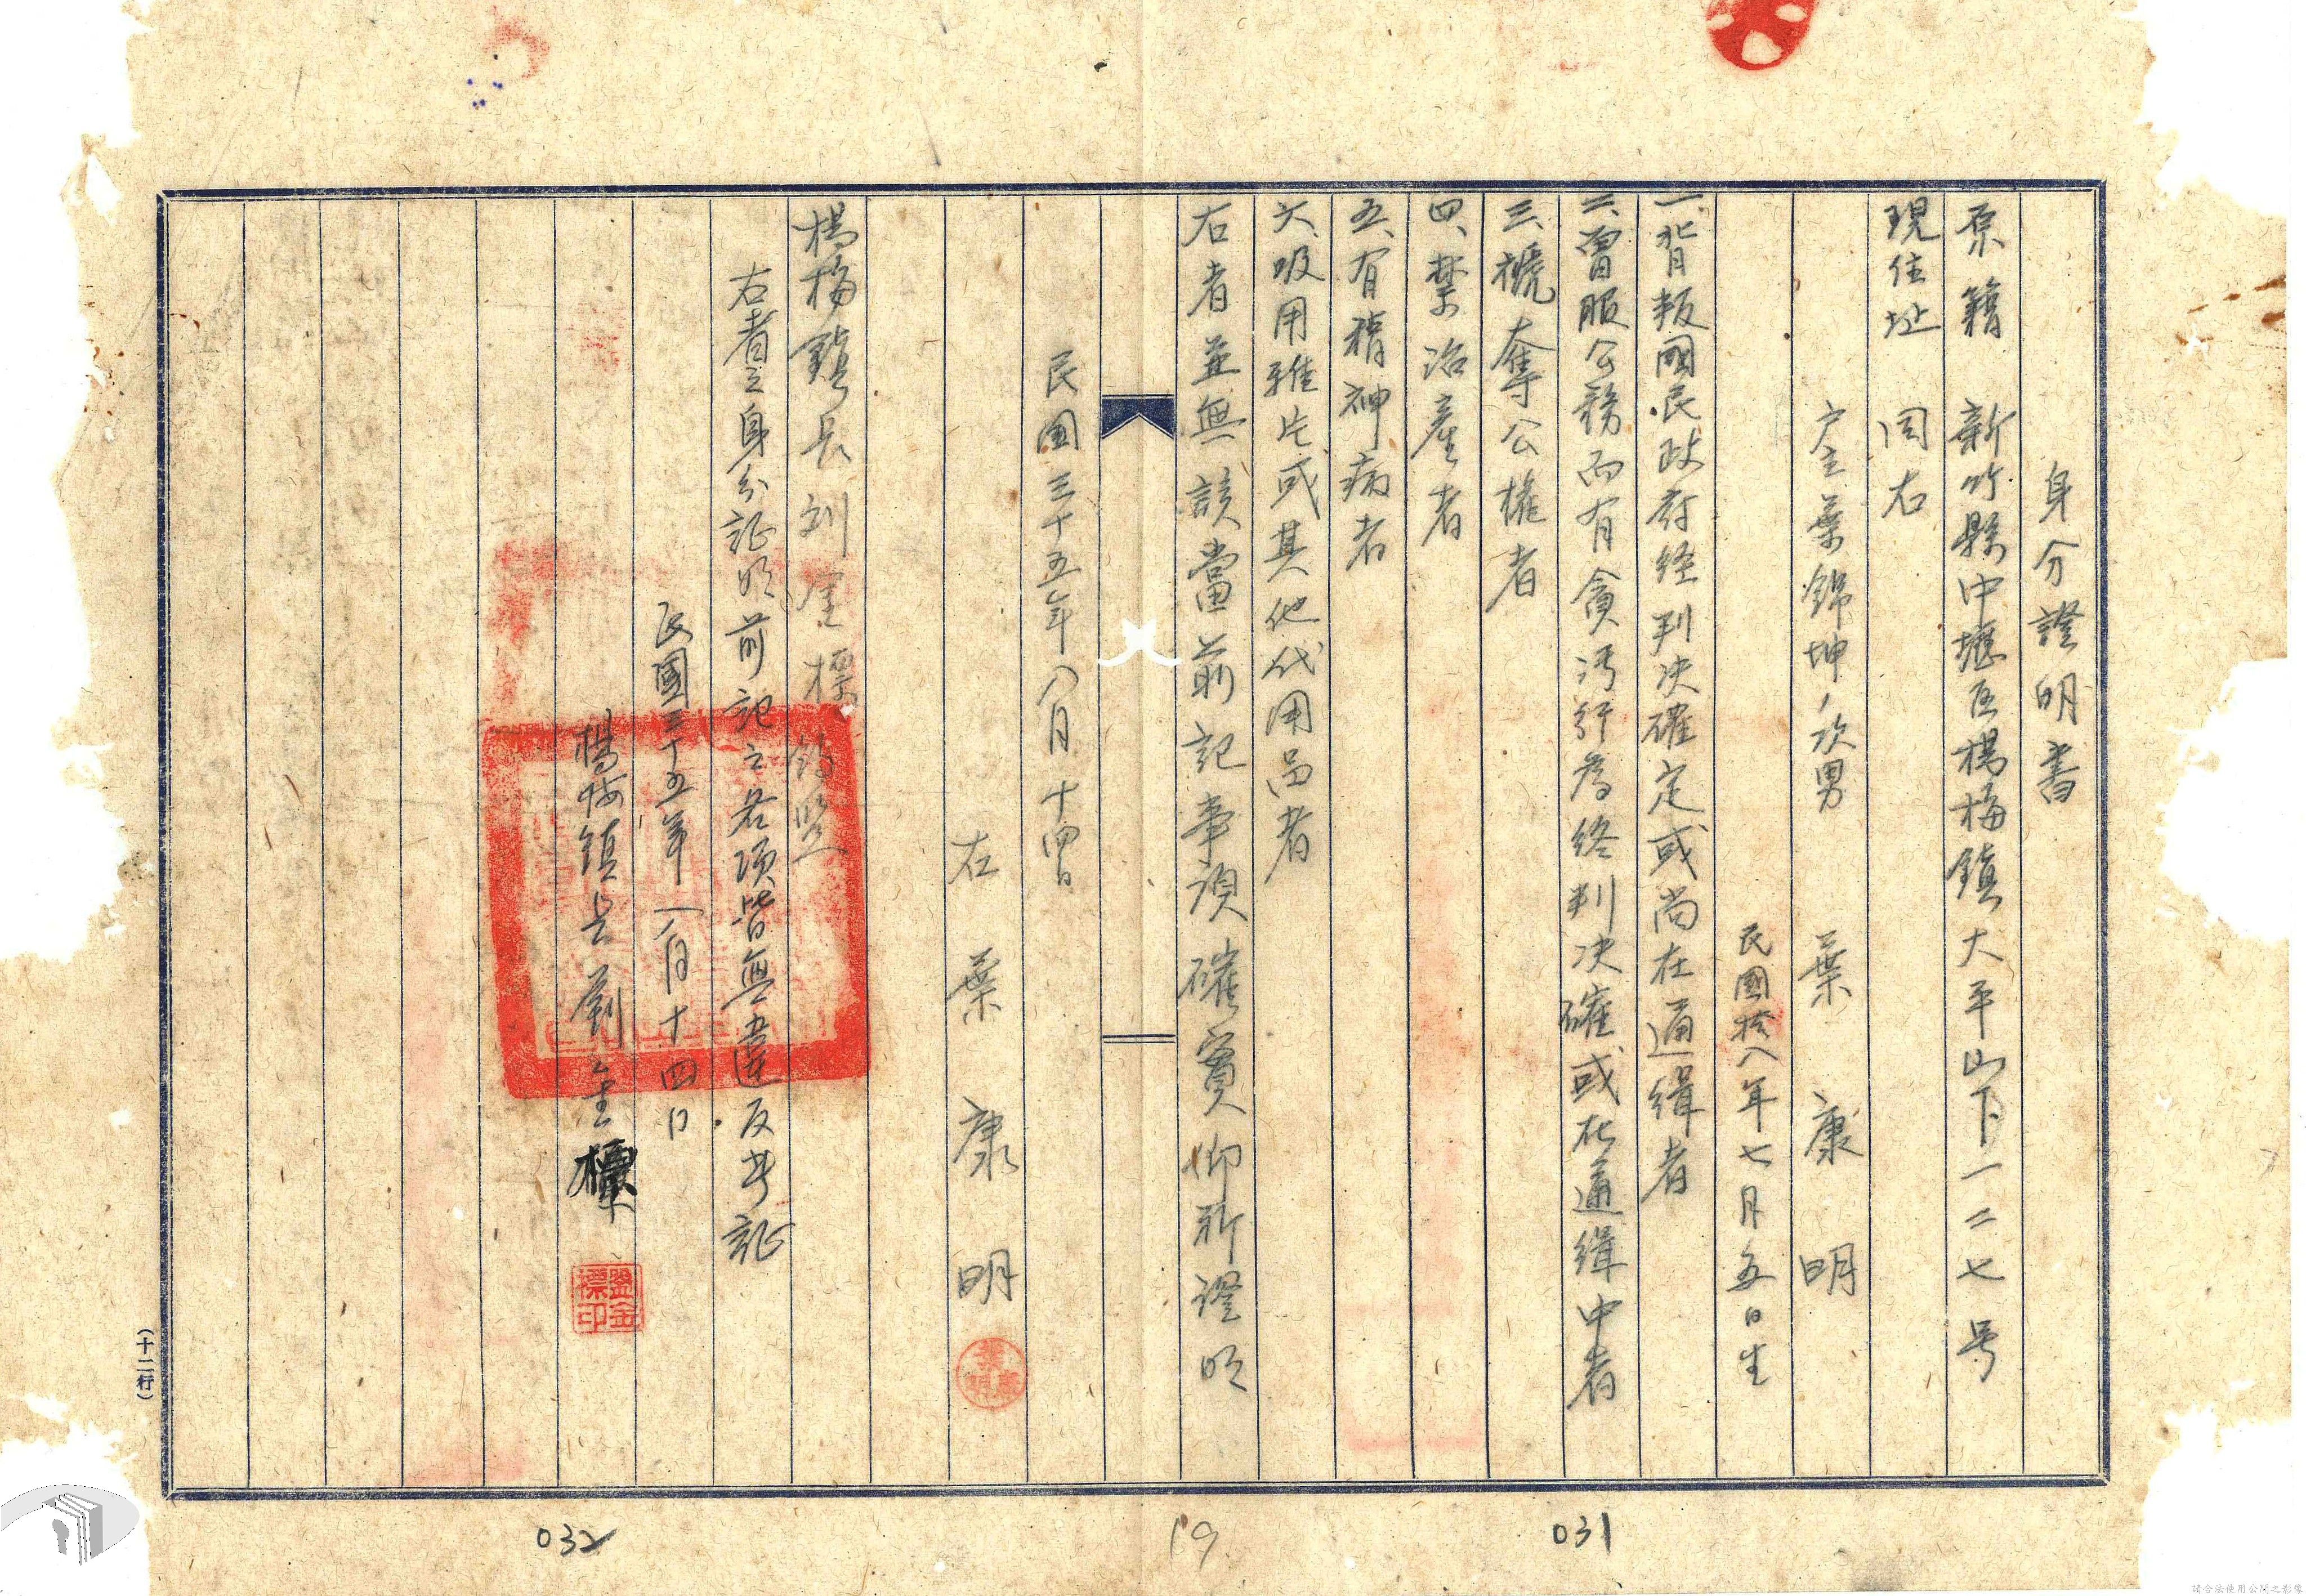 身分證明書
原籍 新竹縣中壢區楊梅鎮大平山下一二七号
現住址 同右
戶主葉錦坤ノ次男 葉康明
民國拾八年七月五日生
一、背叛國民政府経判决確定或尚在通緝者
二、曾服公務而有貪污行為終判决確或在通緝中者
三、褫奪公權者
四、禁治產者
五、有精神病者
六、吸用雅片或其他代用品者
右者並無該當前記事項確實仰祈證明
民国三十五年八月十四日
右 葉康明
楊梅鎮長 刘金標 鈞鑒
右者之身分証明前記之各项皆無違反者証
民國三十五年八月十四日
楊梅鎮長 劉金標
劉金標印
(十二行)
032
19
031
請合法使用公開之影像